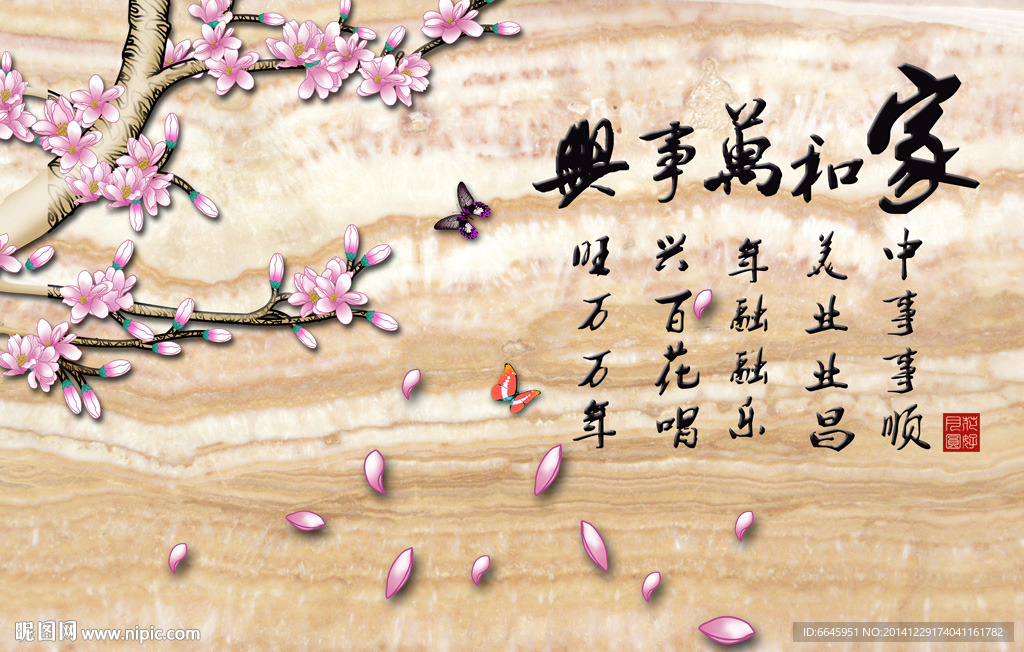 家和萬事興
中事事顺
美业业昌
年融融乐
兴百花唱
旺万万年
花好
月圓
昵图网 www.nipic.com
ID:6645951 NO:20141229174041161782